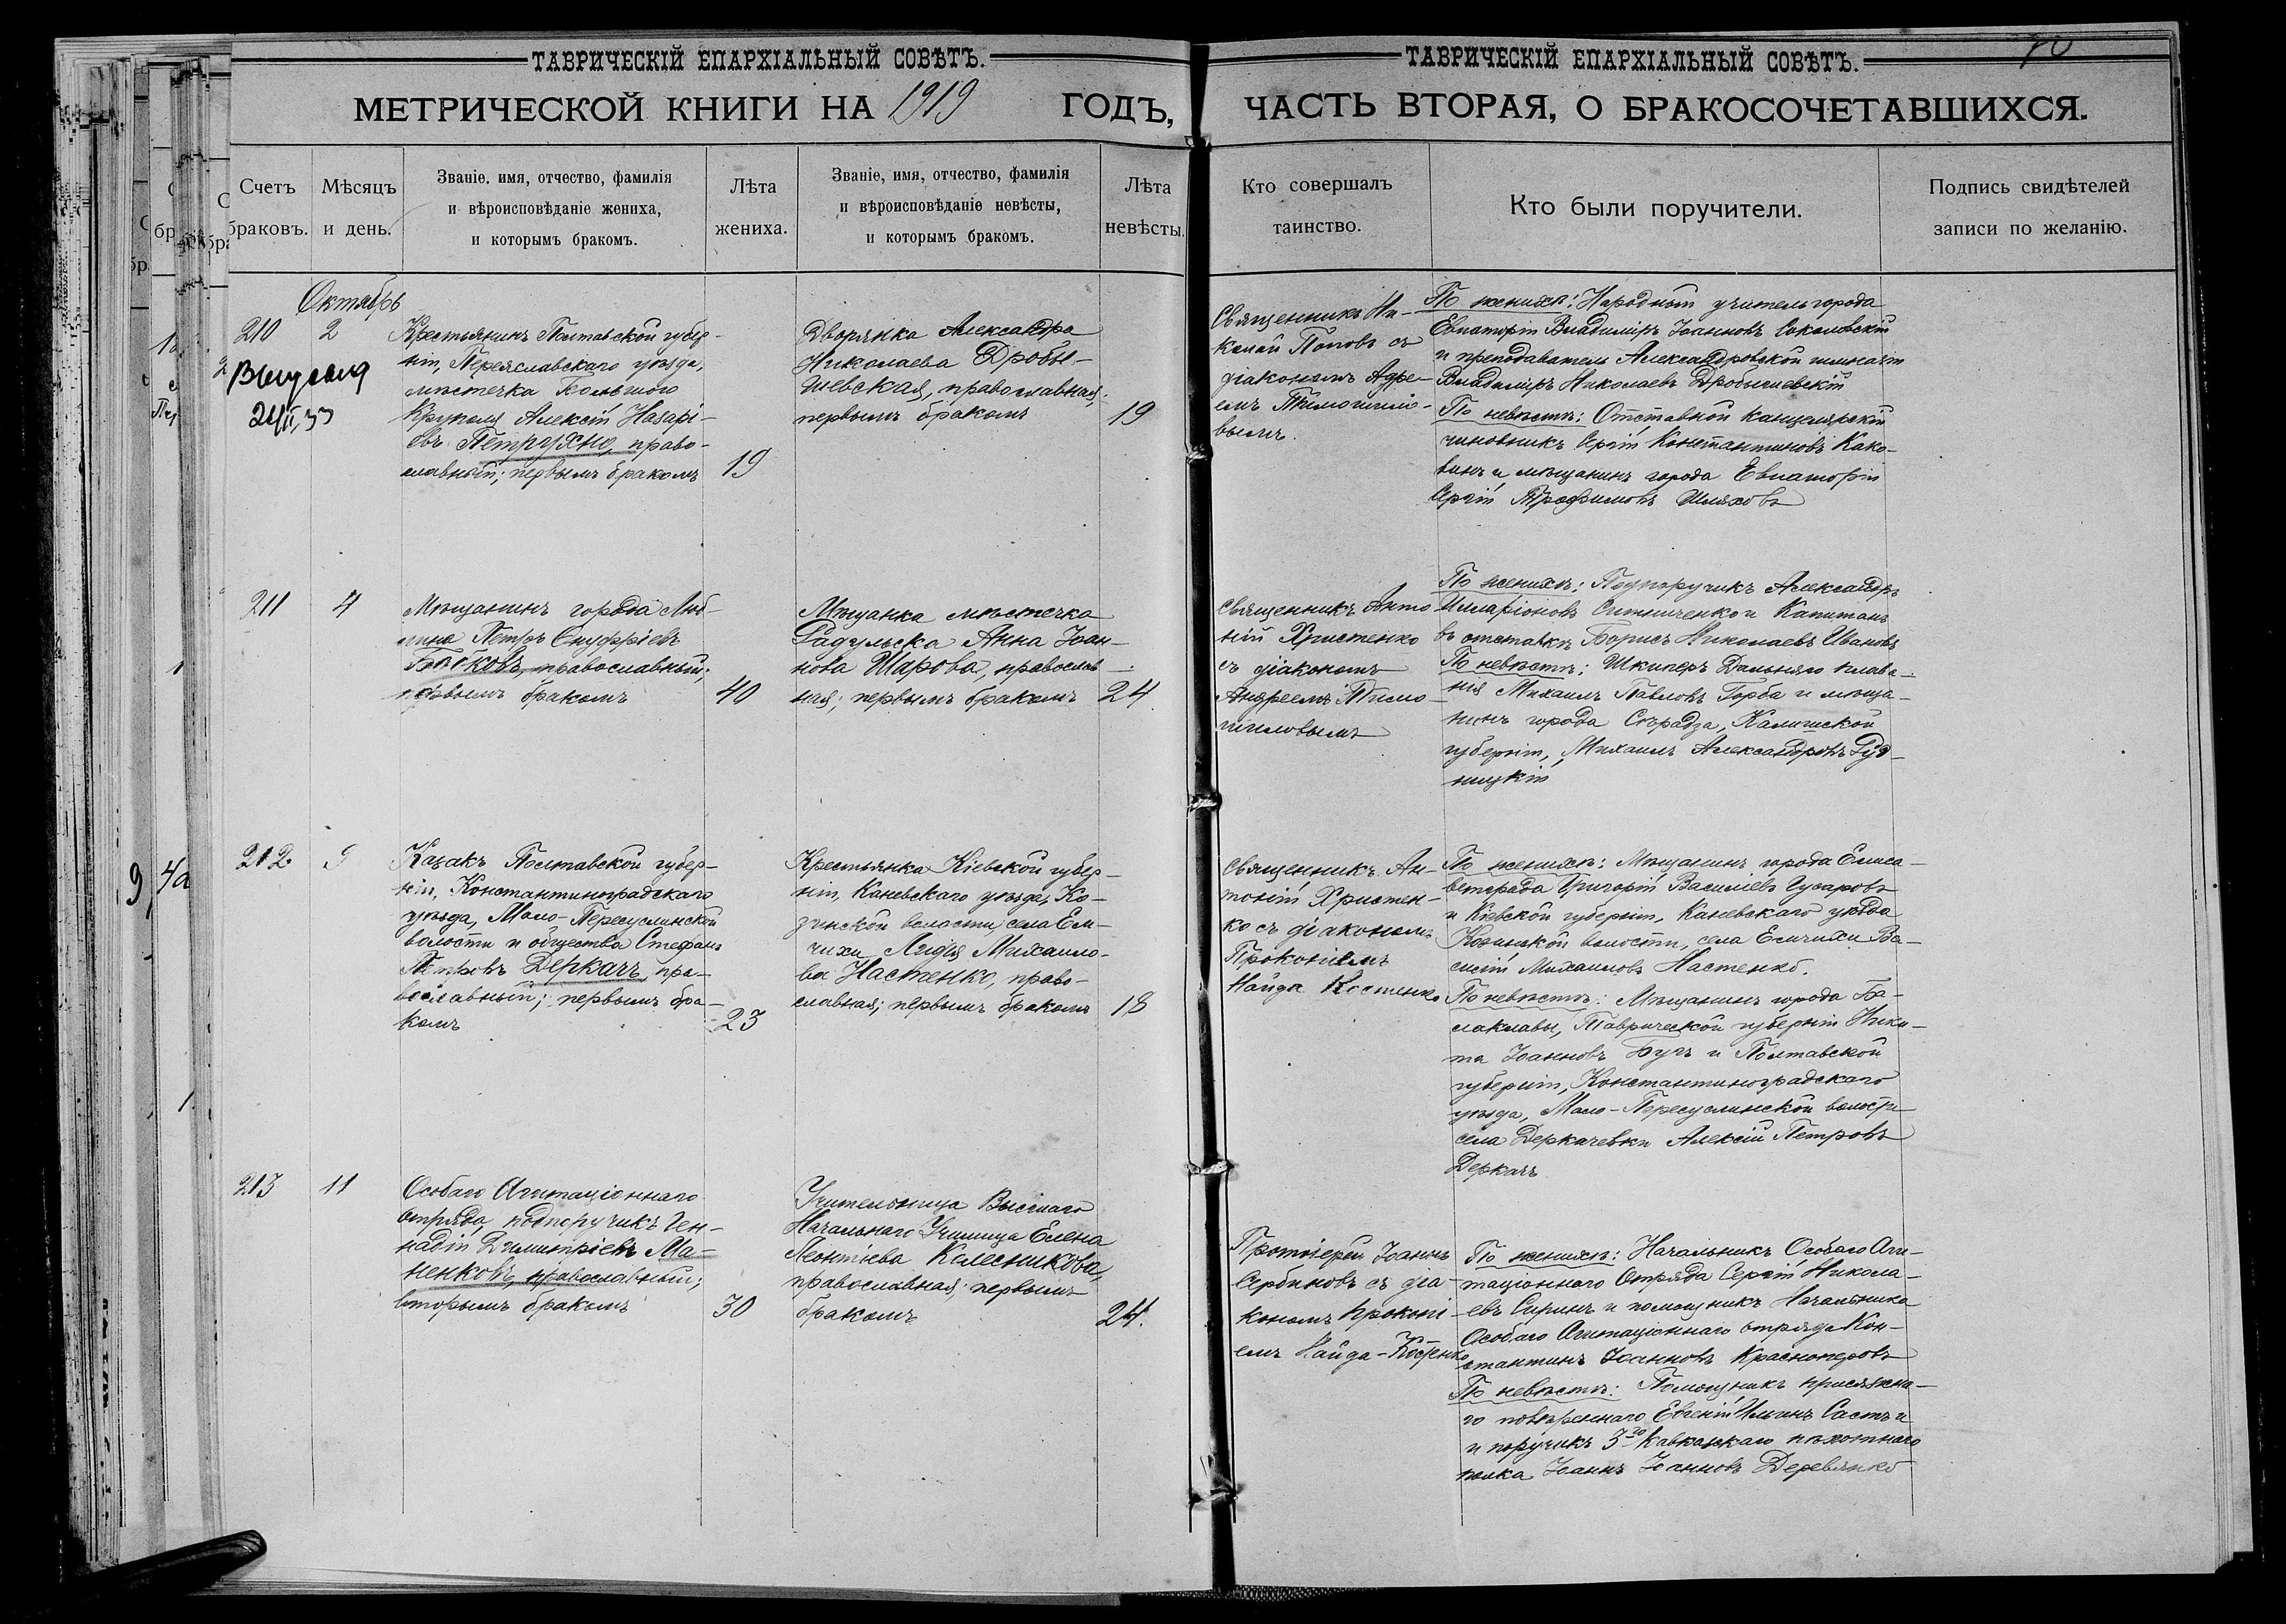 ТАВРИЧЕСКІЙ ЕПАРХІАЛЬНЫЙ СОВѢТЪ.
МЕТРИЧЕСКОЙ КНИГИ НА 1919 ГОДЪ,
Счетъ браковъ.
Мѣсяцъ и день.
Званіе, имя, отчество, фамилія
и вѣроисповѣданіе жениха,
и которымъ бракомъ.
Лѣта жениха.
Званіе, имя, отчество, фамилія
и вѣроисповѣданіе невѣсты,
и которымъ бракомъ.
Лѣта невѣсты.
ТАВРИЧЕСКІЙ ЕПАРХІАЛЬНЫЙ СОВѢТЪ.
ЧАСТЬ ВТОРАЯ, О БРАКОСОЧЕТАВШИХСЯ.
Кто совершалъ
таинство.
Кто были поручители.
Подпись свидѣтелей
записи по желанію.
Октябрь
210
2
Крестьянинъ Полтавской губер-
ніи, Переяславскаго уѣзда,
мѣстечка Большого
Круполя Алексій Назарі-
евъ Петрухно, право-
славный; первымъ бракомъ
19
Дворянка Александра
Николаева Дробы-
шевская, православная;
первымъ бракомъ
19
Священникъ Ни-
колай Поповъ съ
діакономъ Андре-
емъ Тимошило-
вымъ.
По женихѣ: Народный учитель города
Евпаторіи Владиміръ Іоанновъ Соколовскій
и преподаватель Александровской гимназіи
Владиміръ Николаевъ Дробышевскій
По невѣстѣ: Отставной канцелярскій
чиновникъ Сергій Константиновъ Како-
винъ и мѣщанинъ города Евпаторіи
Сергій Трофимовъ Шляховъ
211
4
Мѣщанинъ города Люб-
лина Петръ Онуфріевъ
православный;
первымъ бракомъ
40
Мѣщанка мѣстечка
Радульска Анна Іоан-
нова Шарова, православ-
ная; первымъ бракомъ
24
Священникъ Анто
ній Христенко
съ діакономъ
Андреемъ Тимо-
шиловымъ
По женихѣ: Подпоручикъ Александръ
Илларіоновъ Ситниченко и Капитанъ
въ отставкѣ Борисъ Николаевъ Ивановъ
По невѣстѣ: Шкиперъ Дальняго плава-
нія Михаилъ Павловъ Горба и мѣща-
нинъ города Сѣрадза, Калишской
губерніи, Михаилъ Александровъ Руд-
ницкій
212
9
Казакъ Полтавской губер-
ніи, Константиноградскаго
уѣзда, Мало-Перещепинской
волости и общества Стефанъ
Петровъ Деркачъ, пра-
вославный; первымъ бра-
комъ
23
Крестьянка Кіевской губер-
ніи, Каневскаго уѣзда, Ко-
зинской волости, села Ем-
чихи Лидія Михаило-
ва Настенко, право-
славная; первымъ бракомъ
18
Священникъ Ан-
тоній Христен-
ко съ діакономъ
Прокопіемъ
Найда Костенко
По женихѣ: Мѣщанинъ города Елиса-
ветграда Григорій Василіевъ Гусаровъ
и Кіевской губерніи, Каневскаго уѣзда
Козинской волости, села Емчихи Ва-
силій Михаиловъ Настенко.
По невѣстѣ: Мѣщанинъ города Ба-
лаклавы, Таврической губерніи Ники-
та Іоанновъ Бугъ и Полтавской
губерніи, Константиноградскаго
уѣзда, Мало-Перещепинской волости
села Деркачевки Алексій Петровъ
Деркачъ
213
11
Особаго Агитаціоннаго
отряда, подпоручикъ Ген-
надій Димитріевъ Ма-
ненковъ, православный;
вторымъ бракомъ
30
Учительница Высшаго
Начальнаго Училища Елена
Леонтіева Колесникова,
православная; первымъ
бракомъ
24.
Протоіерей Іоаннъ
Сербиновъ съ діа-
кономъ Прокопі-
емъ Найда-Костенко
По женихѣ: Начальникъ Особаго Аги-
таціоннаго Отряда Сергій Никола-
евъ Сиринъ и помощникъ Начальника
Особаго Агитаціоннаго отряда Кон-
стантинъ Іоанновъ Красноперовъ
По невѣстѣ: Помощникъ присяжна-
го повѣреннаго Евгеній Ильинъ
и поручикъ 3го Кавказскаго пѣхотнаго
полка Іоаннъ Іоанновъ Деревянко